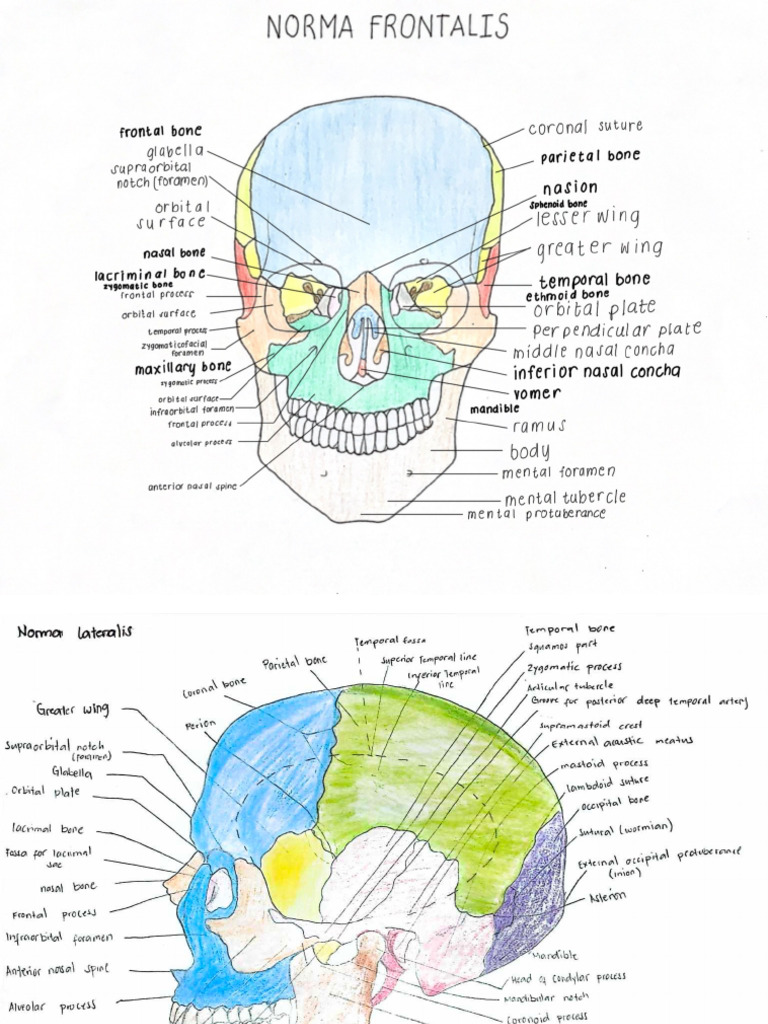 NORMA FRONTALIS
frontal bone
glabella
supraorbital
notch (foramen)
orbital
surface
nasal bone
lacriminal bone
zygomatic bone
frontal process
orbital surface
temporal process
zygomaticofacial
foramen
maxillary bone
zygomatic process
orbital surface
infraorbital foramen
frontal process
alveolar process
anterior nasal spine
coronal suture
parietal bone
nasion
sphenoid bone
lesser wing
greater wing
temporal bone
ethmoid bone
orbital plate
perpendicular plate
middle nasal concha
inferior nasal concha
vomer
mandible
ramus
body
mental foramen
mental tubercle
mental protuberance
Norma lateralis
Temporal fossa
Parietal bone
Superior Temporal line
Inferior Temporal
line
Coronal bone
Perion
Greater wing
Supraorbital notch
(foramen)
Glabella
Orbital plate
lacrimal bone
Fossa for lacrimal
sac
nasal bone
Frontal process
Infraorbital foramen
Anterior nasal spine
Alveolar process
Temporal bone
Squamos part
Zygomatic process
Articular tubercle
Groove for posterior deep temporal artery
Supramastoid crest
External acoustic meatus
mastoid process
Lambdoid suture
occipital bone
Sutural (wormian)
External occipital protuberance
(inion)
Asterion
Mandible
Head of Condylar process
Mandibular notch
Coronoid process